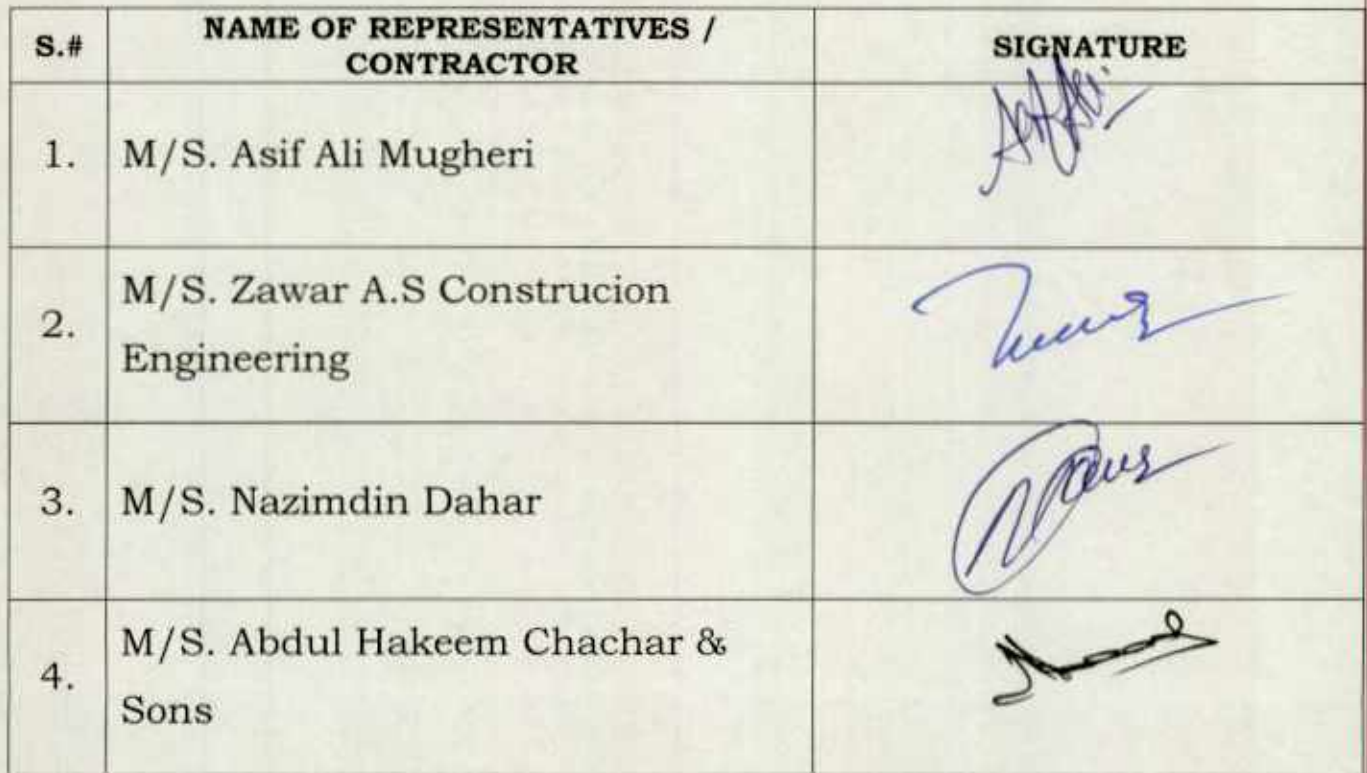 S.#
NAME OF REPRESENTATIVES /
CONTRACTOR
SIGNATURE
1.
M/S. Asif Ali Mugheri
2.
M/S. Zawar A.S Construcion
Engineering
3.
M/S. Nazimdin Dahar
4.
M/S. Abdul Hakeem Chachar &
Sons